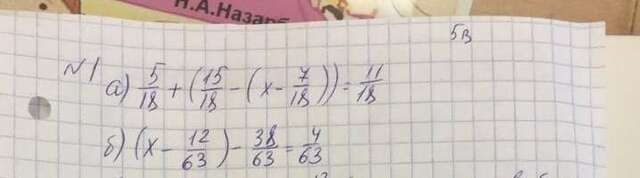 Н.А.Назарб
5в
№1 а) 5/18 + (15/18 - (x - 7/18)) = 11/18
б) (x - 12/63) - 38/63 = 4/63